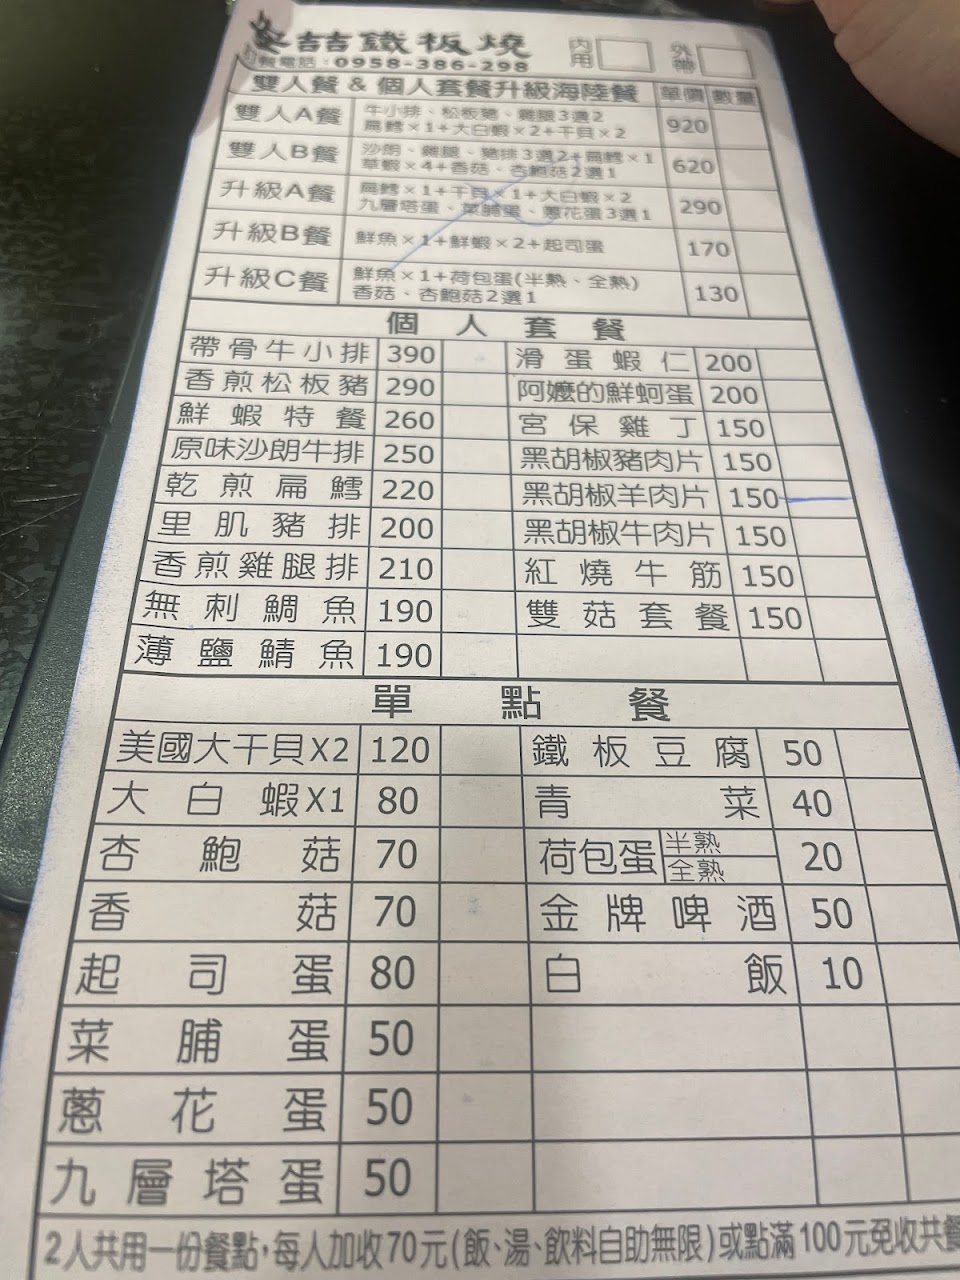 喆鐵板燒
內用
外帶
餐電話：0958-386-298
雙人餐 & 個人套餐升級海陸餐 單價 數量
雙人A餐 牛小排、松板豬、雞腿3選2 920
扁鱈×1+大白蝦×2+干貝×2
雙人B餐 沙朗、雞腿、豬排3選2+扁鱈×1 620
草蝦×4+香菇、杏鮑菇2選1
升級A餐 扁鱈×1+干貝×1+大白蝦×2 290
九層塔蛋、菜脯蛋、蔥花蛋3選1
升級B餐 鮮魚×1+鮮蝦×2+起司蛋 170
升級C餐 鮮魚×1+荷包蛋(半熟、全熟) 130
香菇、杏鮑菇2選1
個人套餐
帶骨牛小排 390 滑蛋蝦仁 200
香煎松板豬 290 阿嬤的鮮蚵蛋 200
鮮蝦特餐 260 宮保雞丁 150
原味沙朗牛排 250 黑胡椒豬肉片 150
乾煎扁鱈 220 黑胡椒羊肉片 150
里肌豬排 200 黑胡椒牛肉片 150
香煎雞腿排 210 紅燒牛筋 150
無刺鯛魚 190 雙菇套餐 150
薄鹽鯖魚 190
單點餐
美國大干貝X2 120 鐵板豆腐 50
大白蝦X1 80 青菜 40
杏鮑菇 70 荷包蛋 半熟 全熟 20
香菇 70 金牌啤酒 50
起司蛋 80 白飯 10
菜脯蛋 50
蔥花蛋 50
九層塔蛋 50
2人共用一份餐點，每人加收70元(飯、湯、飲料自助無限)或點滿100元免收共餐